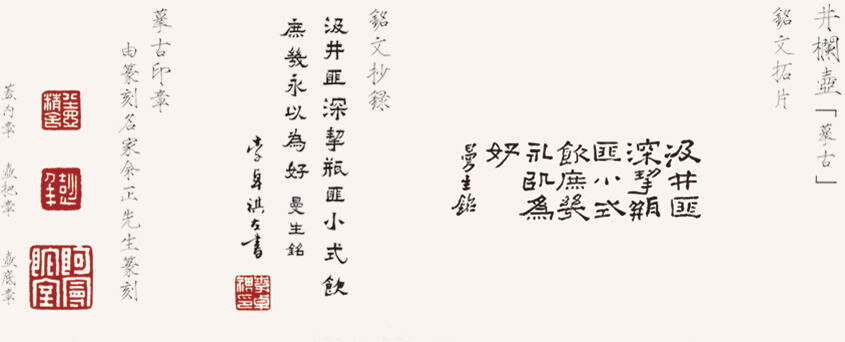 井欄壺「摹古」
銘文拓片
汲井匪
深挈瓶
匪小式
飲庶幾
永㠯為
好
曼生銘
銘文抄錄
汲井匪深挈瓶匪小式飲
庶幾永以為好 曼生銘
李卓祺左書
李卓祺印
摹古印章
由篆刻名家余正先生篆刻
彭年
阿曼陀室
蓋內章 壺把章 壺底章